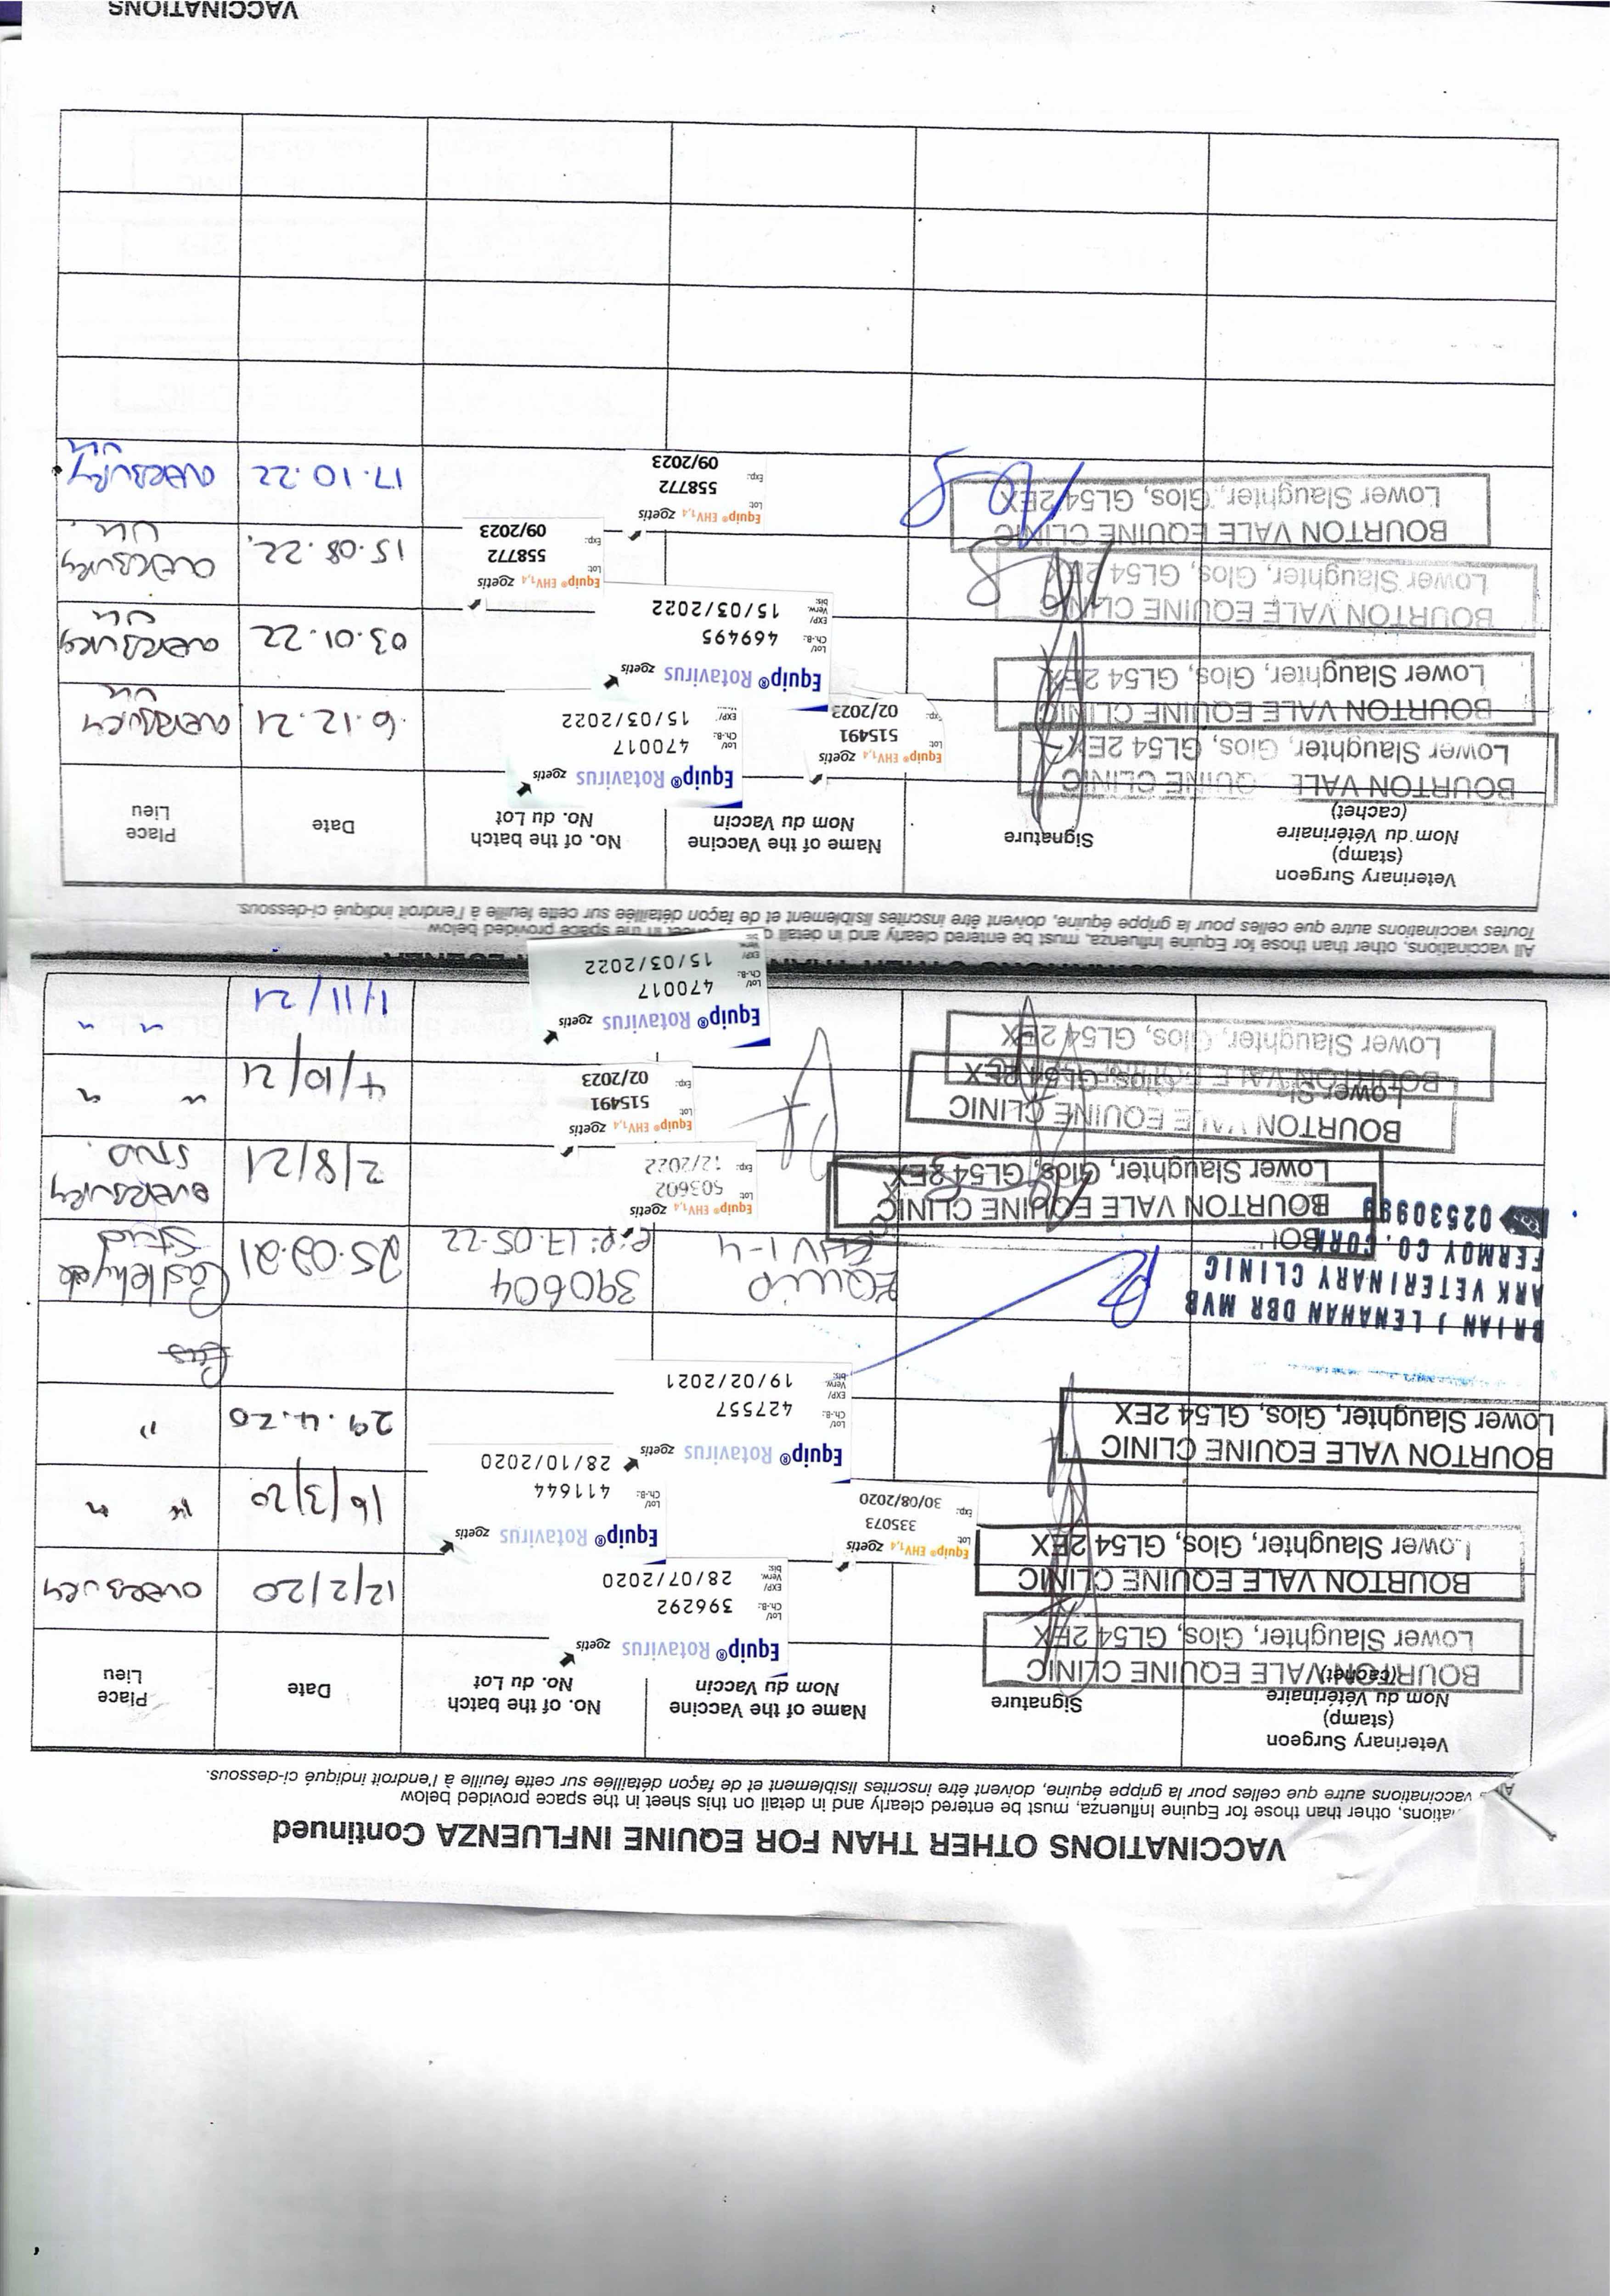 VACCINATIONS OTHER THAN FOR EQUINE INFLUENZA Continued
nations, other than those for Equine Influenza, must be entered clearly and in detail on this sheet in the space provided below
vaccinations autre que celles pour la grippe équine, doivent être inscrites lisiblement et de façon détaillée sur cette feuille à l'endroit indiqué ci-dessous.
Veterinary Surgeon
(stamp)
Nom du Vétérinaire
(cachet)
Signature
Name of the Vaccine
Nom du Vaccin
No. of the batch
No. du Lot
Date
Place
Lieu
BOURTON VALE EQUINE CLINIC
Lower Slaughter, Glos, GL54 2EX
Equip® Rotavirus zoetis
Lot/
Ch-B.: 396292
EXP/
Verw.
bis: 28/07/2020
12/2/20
OVERBURY
BOURTON VALE EQUINE CLINIC
Lower Slaughter, Glos, GL54 2EX
Equip® EHV1,4 zoetis
Lot: 335073
Exp.: 30/08/2020
Equip® Rotavirus zoetis
Lot/
Ch-B.: 411644
28/10/2020
16/3/20
" "
BOURTON VALE EQUINE CLINIC
Lower Slaughter, Glos, GL54 2EX
Equip® Rotavirus zoetis
Lot/
Ch-B.: 427557
EXP/
Verw.
bis: 19/02/2021
29.4.20
"
BRIAN J LENAHAN DBR MVB
ARK VETERINARY CLINIC
FERMOY CO. CORK
02530999
EQUIP
EHV1-4
390604
exp: 17.05.22
25.03.21
Castlehyde
Stud
BOURTON VALE EQUINE CLINIC
Lower Slaughter, Glos, GL54 2EX
Equip® EHV1,4 zoetis
Lot: 503602
Exp.: 12/2022
2/8/21
OVERBURY
STUD.
BOURTON VALE EQUINE CLINIC
Equip® EHV1,4 zoetis
Lot: 515491
Exp.: 02/2023
4/10/21
" "
BOURTON VALE EQUINE CLINIC
Lower Slaughter, Glos, GL54 2EX
Equip® Rotavirus zoetis
Lot/
Ch-B.: 470017
EXP/
Verw.
bis: 15/03/2022
1/11/21
" "
All vaccinations, other than those for Equine Influenza, must be entered clearly and in detail sheet in the space provided below
Toutes vaccinations autre que celles pour la grippe équine, doivent être inscrites lisiblement et de façon détaillée sur cette feuille à l'endroit indiqué ci-dessous.
Veterinary Surgeon
(stamp)
Nom du Vétérinaire
(cachet)
Signature
Name of the Vaccine
Nom du Vaccin
No. of the batch
No. du Lot
Date
Place
Lieu
BOURTON VALE EQUINE CLINIC
Lower Slaughter, Glos, GL54 2EX
Equip® EHV1,4 zoetis
Lot: 515491
Exp.: 02/2023
Equip® Rotavirus zoetis
Lot/
Ch-B.: 470017
EXP/ 15/03/2022
6.12.21
OVERBURY
UK
BOURTON VALE EQUINE CLINIC
Lower Slaughter, Glos, GL54 2EX
Equip® Rotavirus zoetis
Lot/
Ch-B.: 469495
EXP/
Verw.
bis: 15/03/2022
03.01.22
OVERBURY
UK
BOURTON VALE EQUINE CLINIC
Lower Slaughter, Glos, GL54 2EX
Equip® EHV1,4 zoetis
Lot: 558772
Exp.: 09/2023
15.08.22.
OVERBURY
UK.
BOURTON VALE EQUINE CLINIC
Lower Slaughter, Glos, GL54 2EX
Equip® EHV1,4 zoetis
Lot: 558772
Exp.: 09/2023
17.10.22
OVERBURY
UK
VACCINATIONS